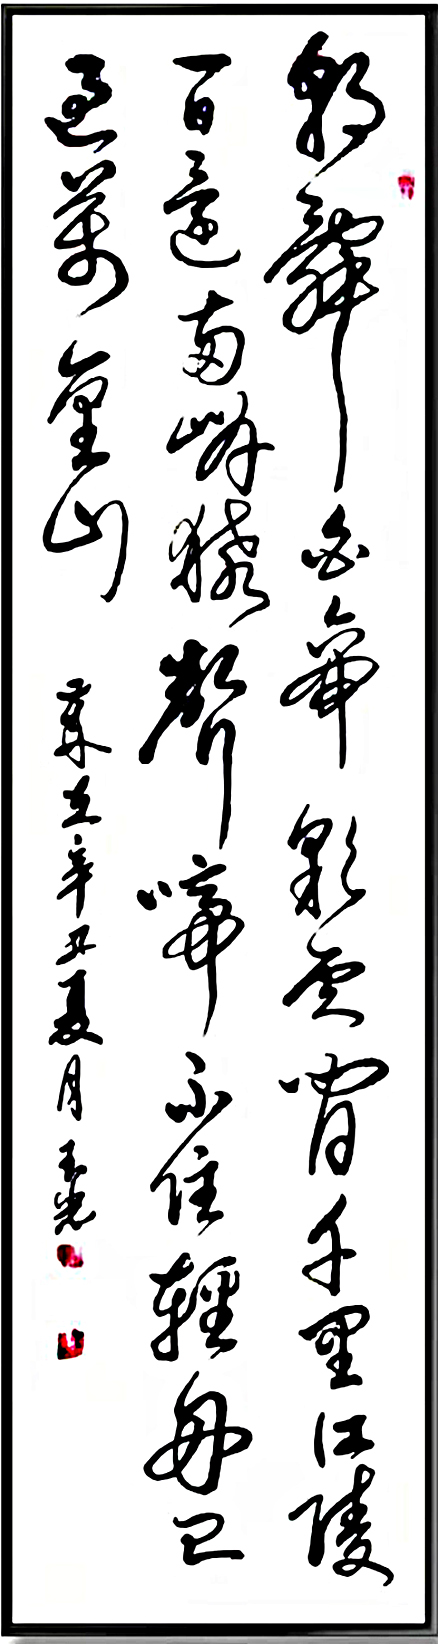 朝辭白帝彩雲間千里江陵
一日還兩岸猿聲啼不住輕舟已
過萬重山
歲在辛丑夏月玉光